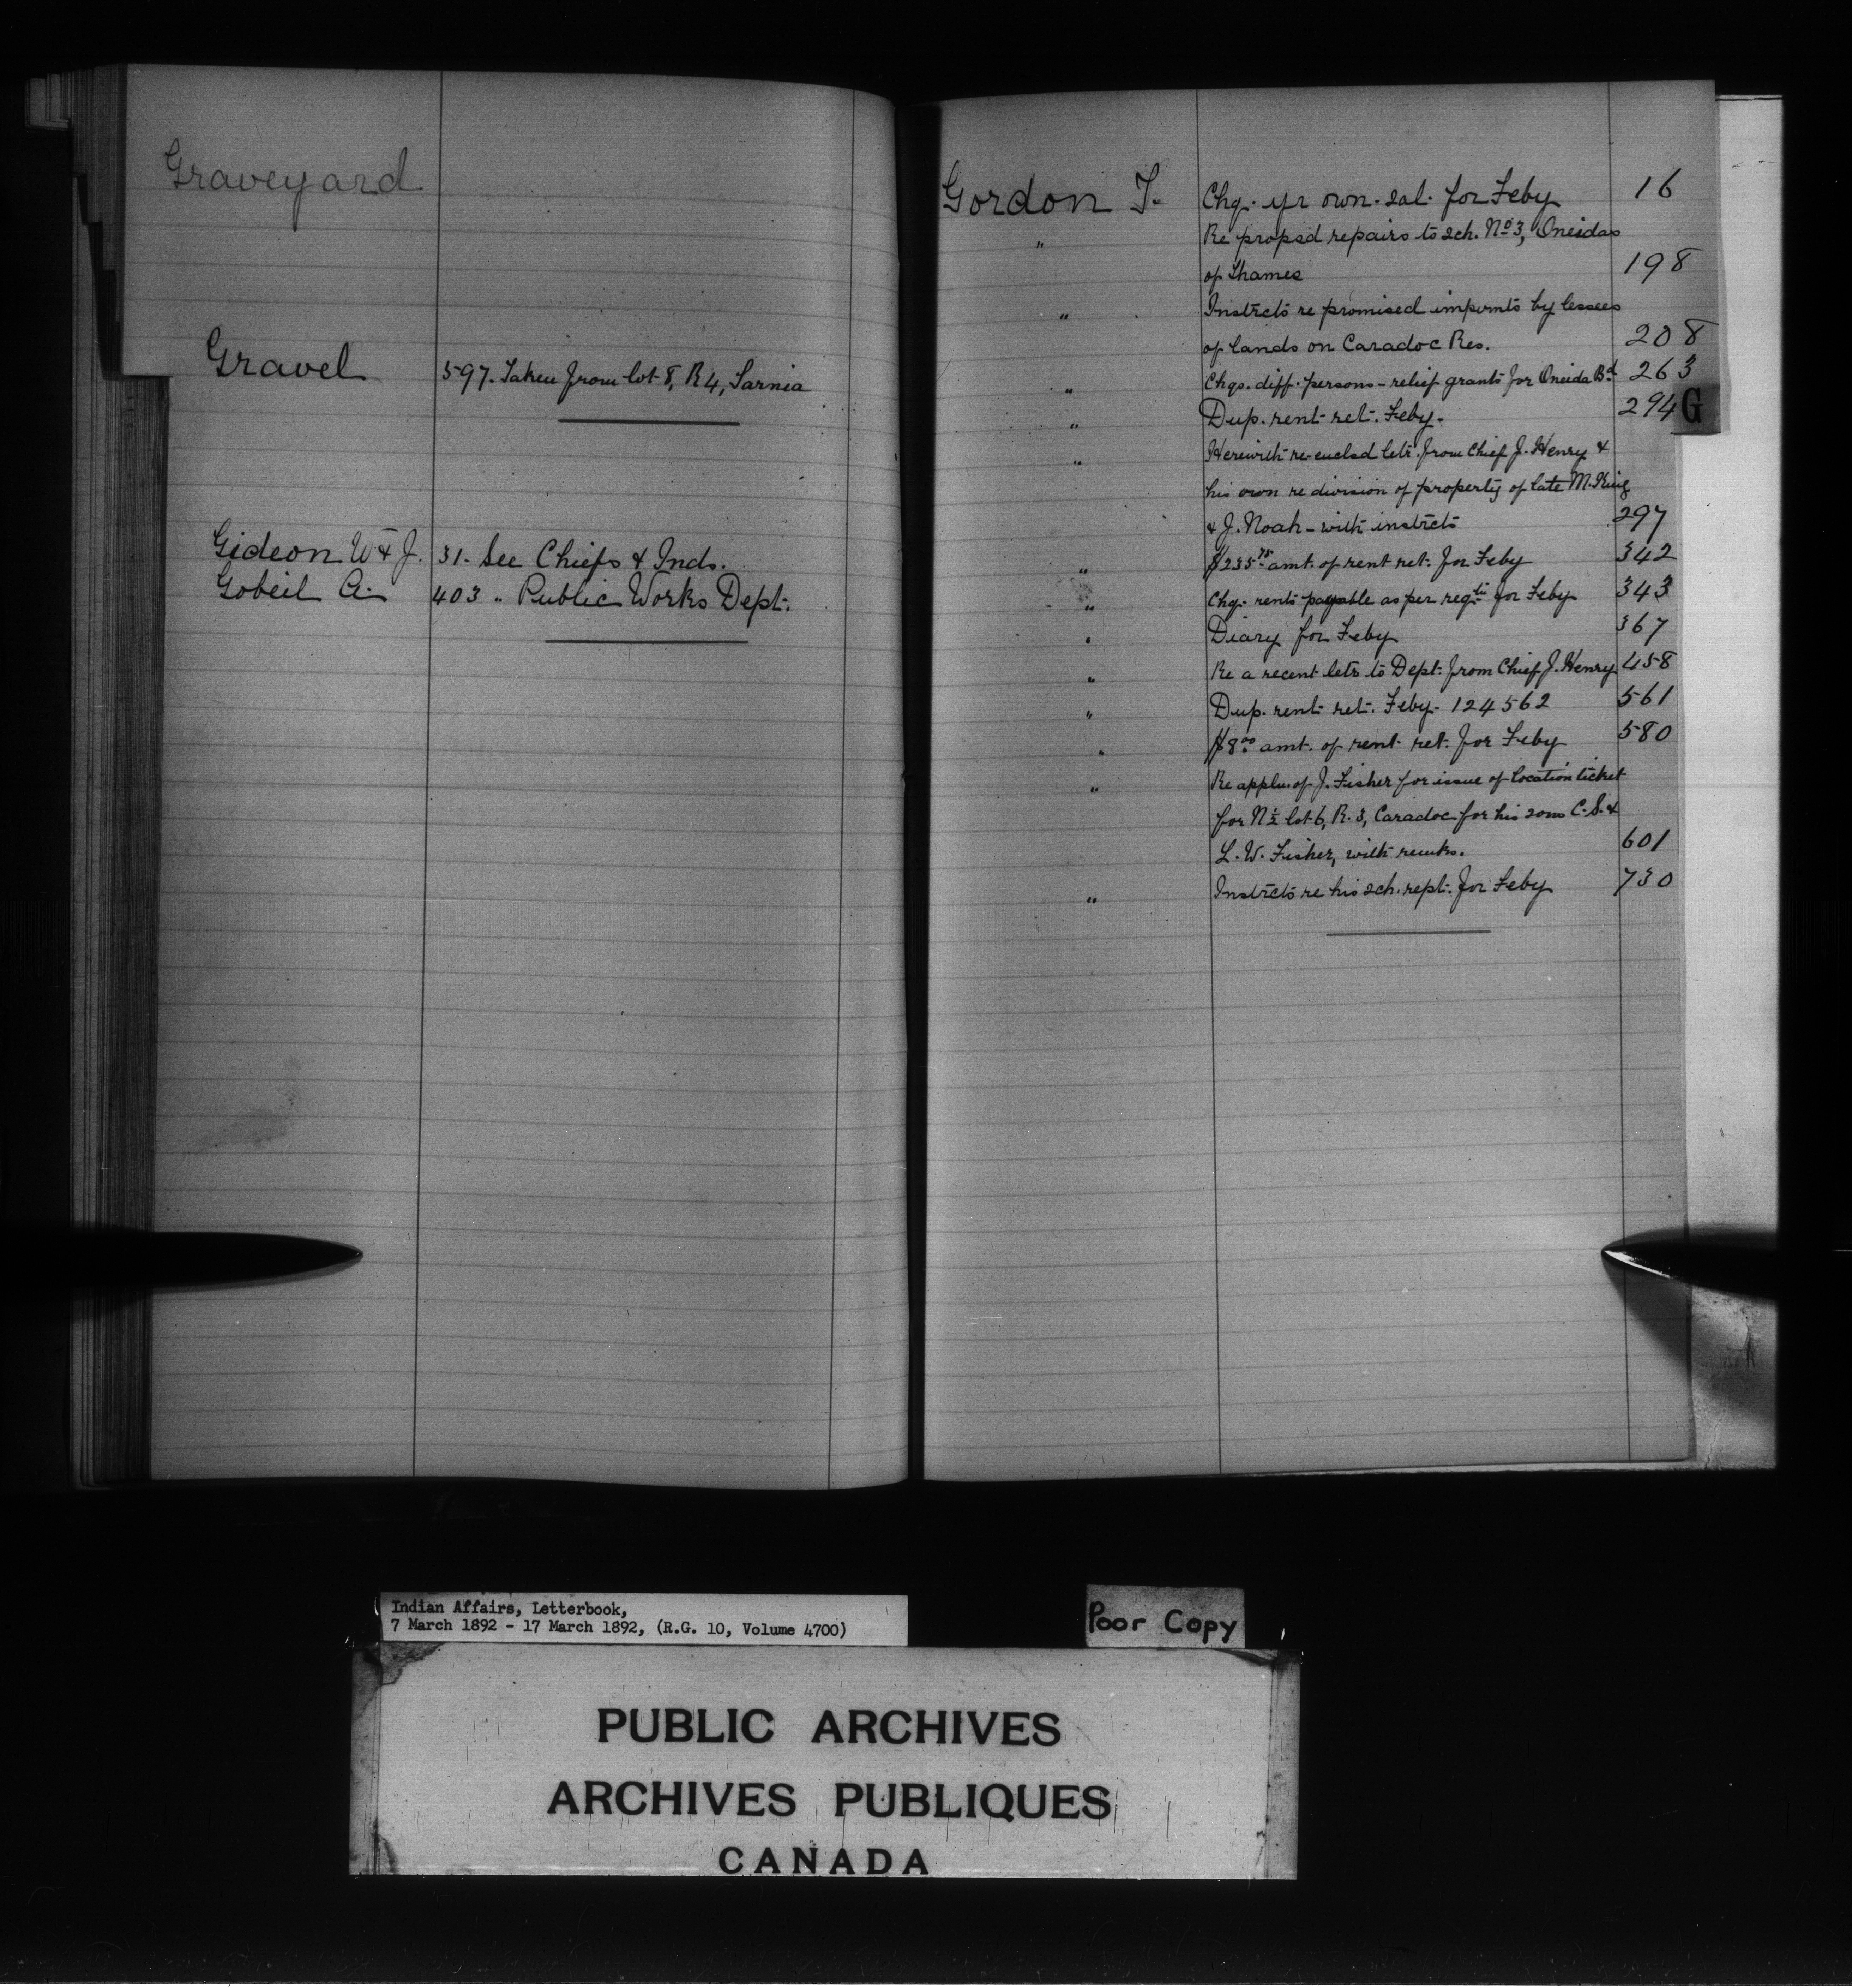 Graveyard
Gravel 597. Taken from lot 8, R 4, Sarnia
Gideon W & J. 31. See Chiefs & Inds.
Gobeil A. 403 " Public Works Dept.
Gordon T. Chq. yr own. sal. for Feby 16
" Re propsd repairs to sch. No 3, Oneidas
of Thames 198
" Instrcts re promised impvmts by lessees
of lands on Caradoc Res. 208
" Chqs. diff. persons - relief grants for Oneida Bd 263
" Dup. rent ret. Feby. 294
G
" Herewith re-enclsd letr from Chief J. Henry &
his own re division of property of late M. King
& J. Noah - with instrcts 297
" $235.75 amt. of rent ret. for Feby 342
" Chq. rents payable as per reqtn for Feby 343
" Diary for Feby 367
" Re a recent letr to Dept. from Chief J. Henry 458
" Dup. rent ret. Feby - 124562 561
" $8.00 amt. of rent ret. for Feby 580
" Re appln. of J. Fisher for issue of location ticket
for N ½ lot 6, R. 3, Caradoc for his sons C. S. &
L. W. Fisher, with remks. 601
" Instrcts re his sch. rept. for Feby 730
Indian Affairs, Letterbook,
7 March 1892 - 17 March 1892, (R.G. 10, Volume 4700)
Poor Copy
PUBLIC ARCHIVES
ARCHIVES PUBLIQUES
CANADA